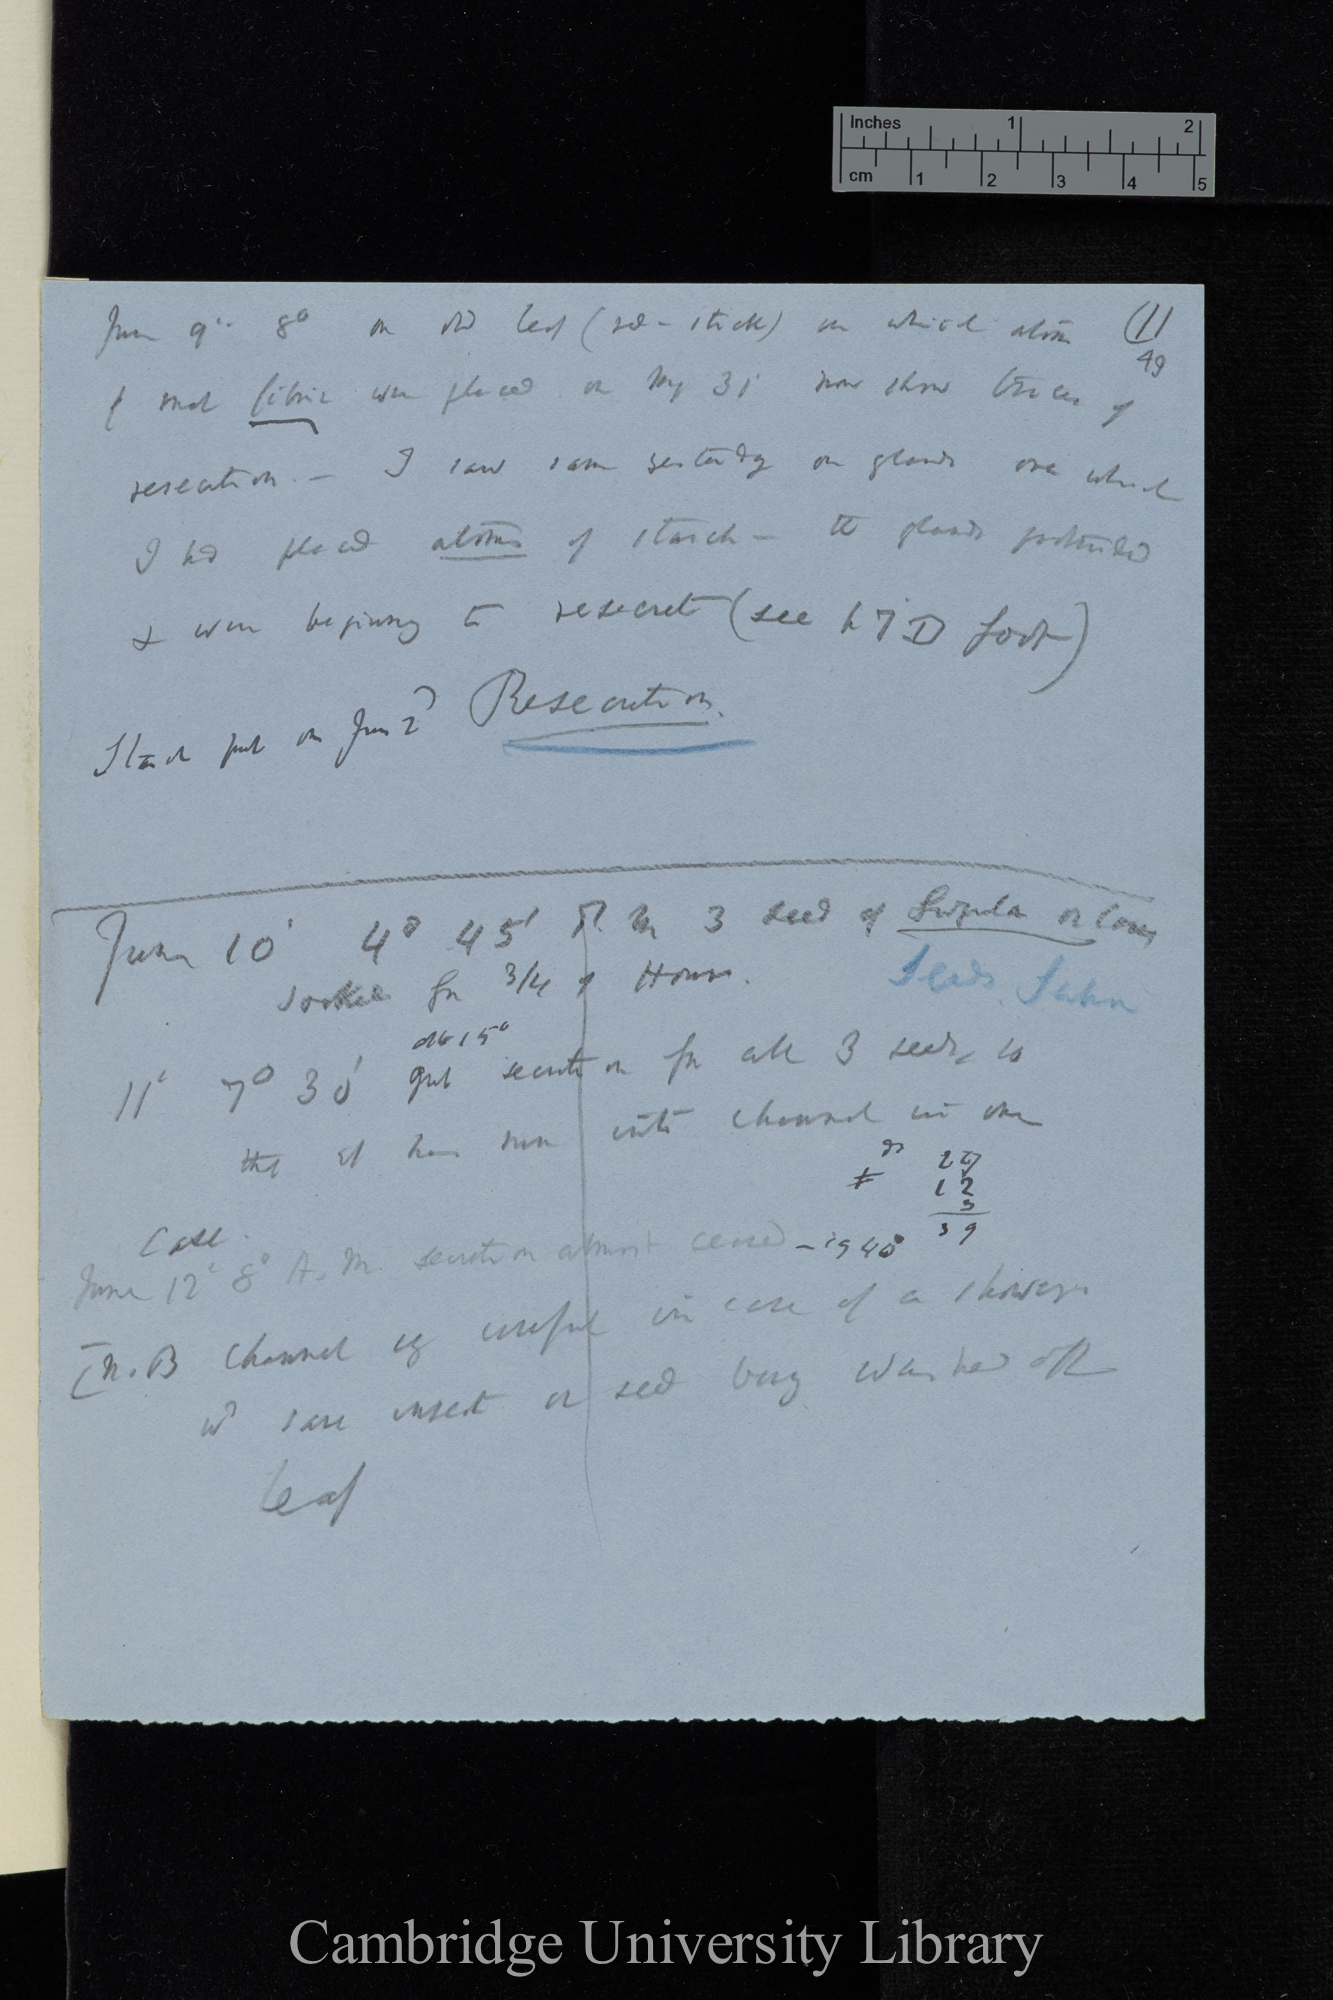 Inches 1 2
cm 1 2 3 4 5
(11
49
June 9' 8° on old leaf (red-stick) on which atoms
of meat fibrin were placed on May 31 now show traces of
resecretion. — I saw same yesterday on glands over which
I had placed atoms of starch — the glands protruded
& were beginning to resecrete (see 7 D foot)
Starch put on June 2)
Resecretion.
June 10' 4° 45' P. M 3 seed of
soaked for 3/4 of Hour.
Seeds
at 15°
11' 7° 30' great secretion for all 3 seeds, so
that it has run into channel in one
case.
27
12
39
June 12' 8° A. M. secretion almost ceased — is 40°
[N.B Channel is useful in case of a shower
wd save insect or seed being washed off
leaf
Cambridge University Library